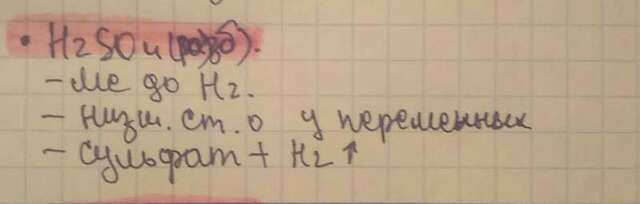 • H2SO4 (разб).
- Me до H2.
- низш. ст. о у переменных
- сульфат + H2↑